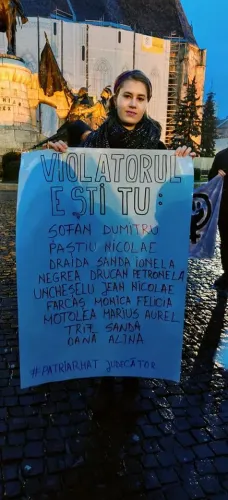 VIOLATORUL
EȘTI TU:
ȘOFAN DUMITRU
PAȘTIU NICOLAE
DRAIDA SANDA IONELA
NEGREA DRUCAN PETRONELA
UNCHEȘELU JEAN NICOLAE
FARCAȘ MONICA FELICIA
MOTOLEA MARIUS AUREL
TRIF SANDA
OANA ALINA
#PATRIARHAT JUDECĂTOR